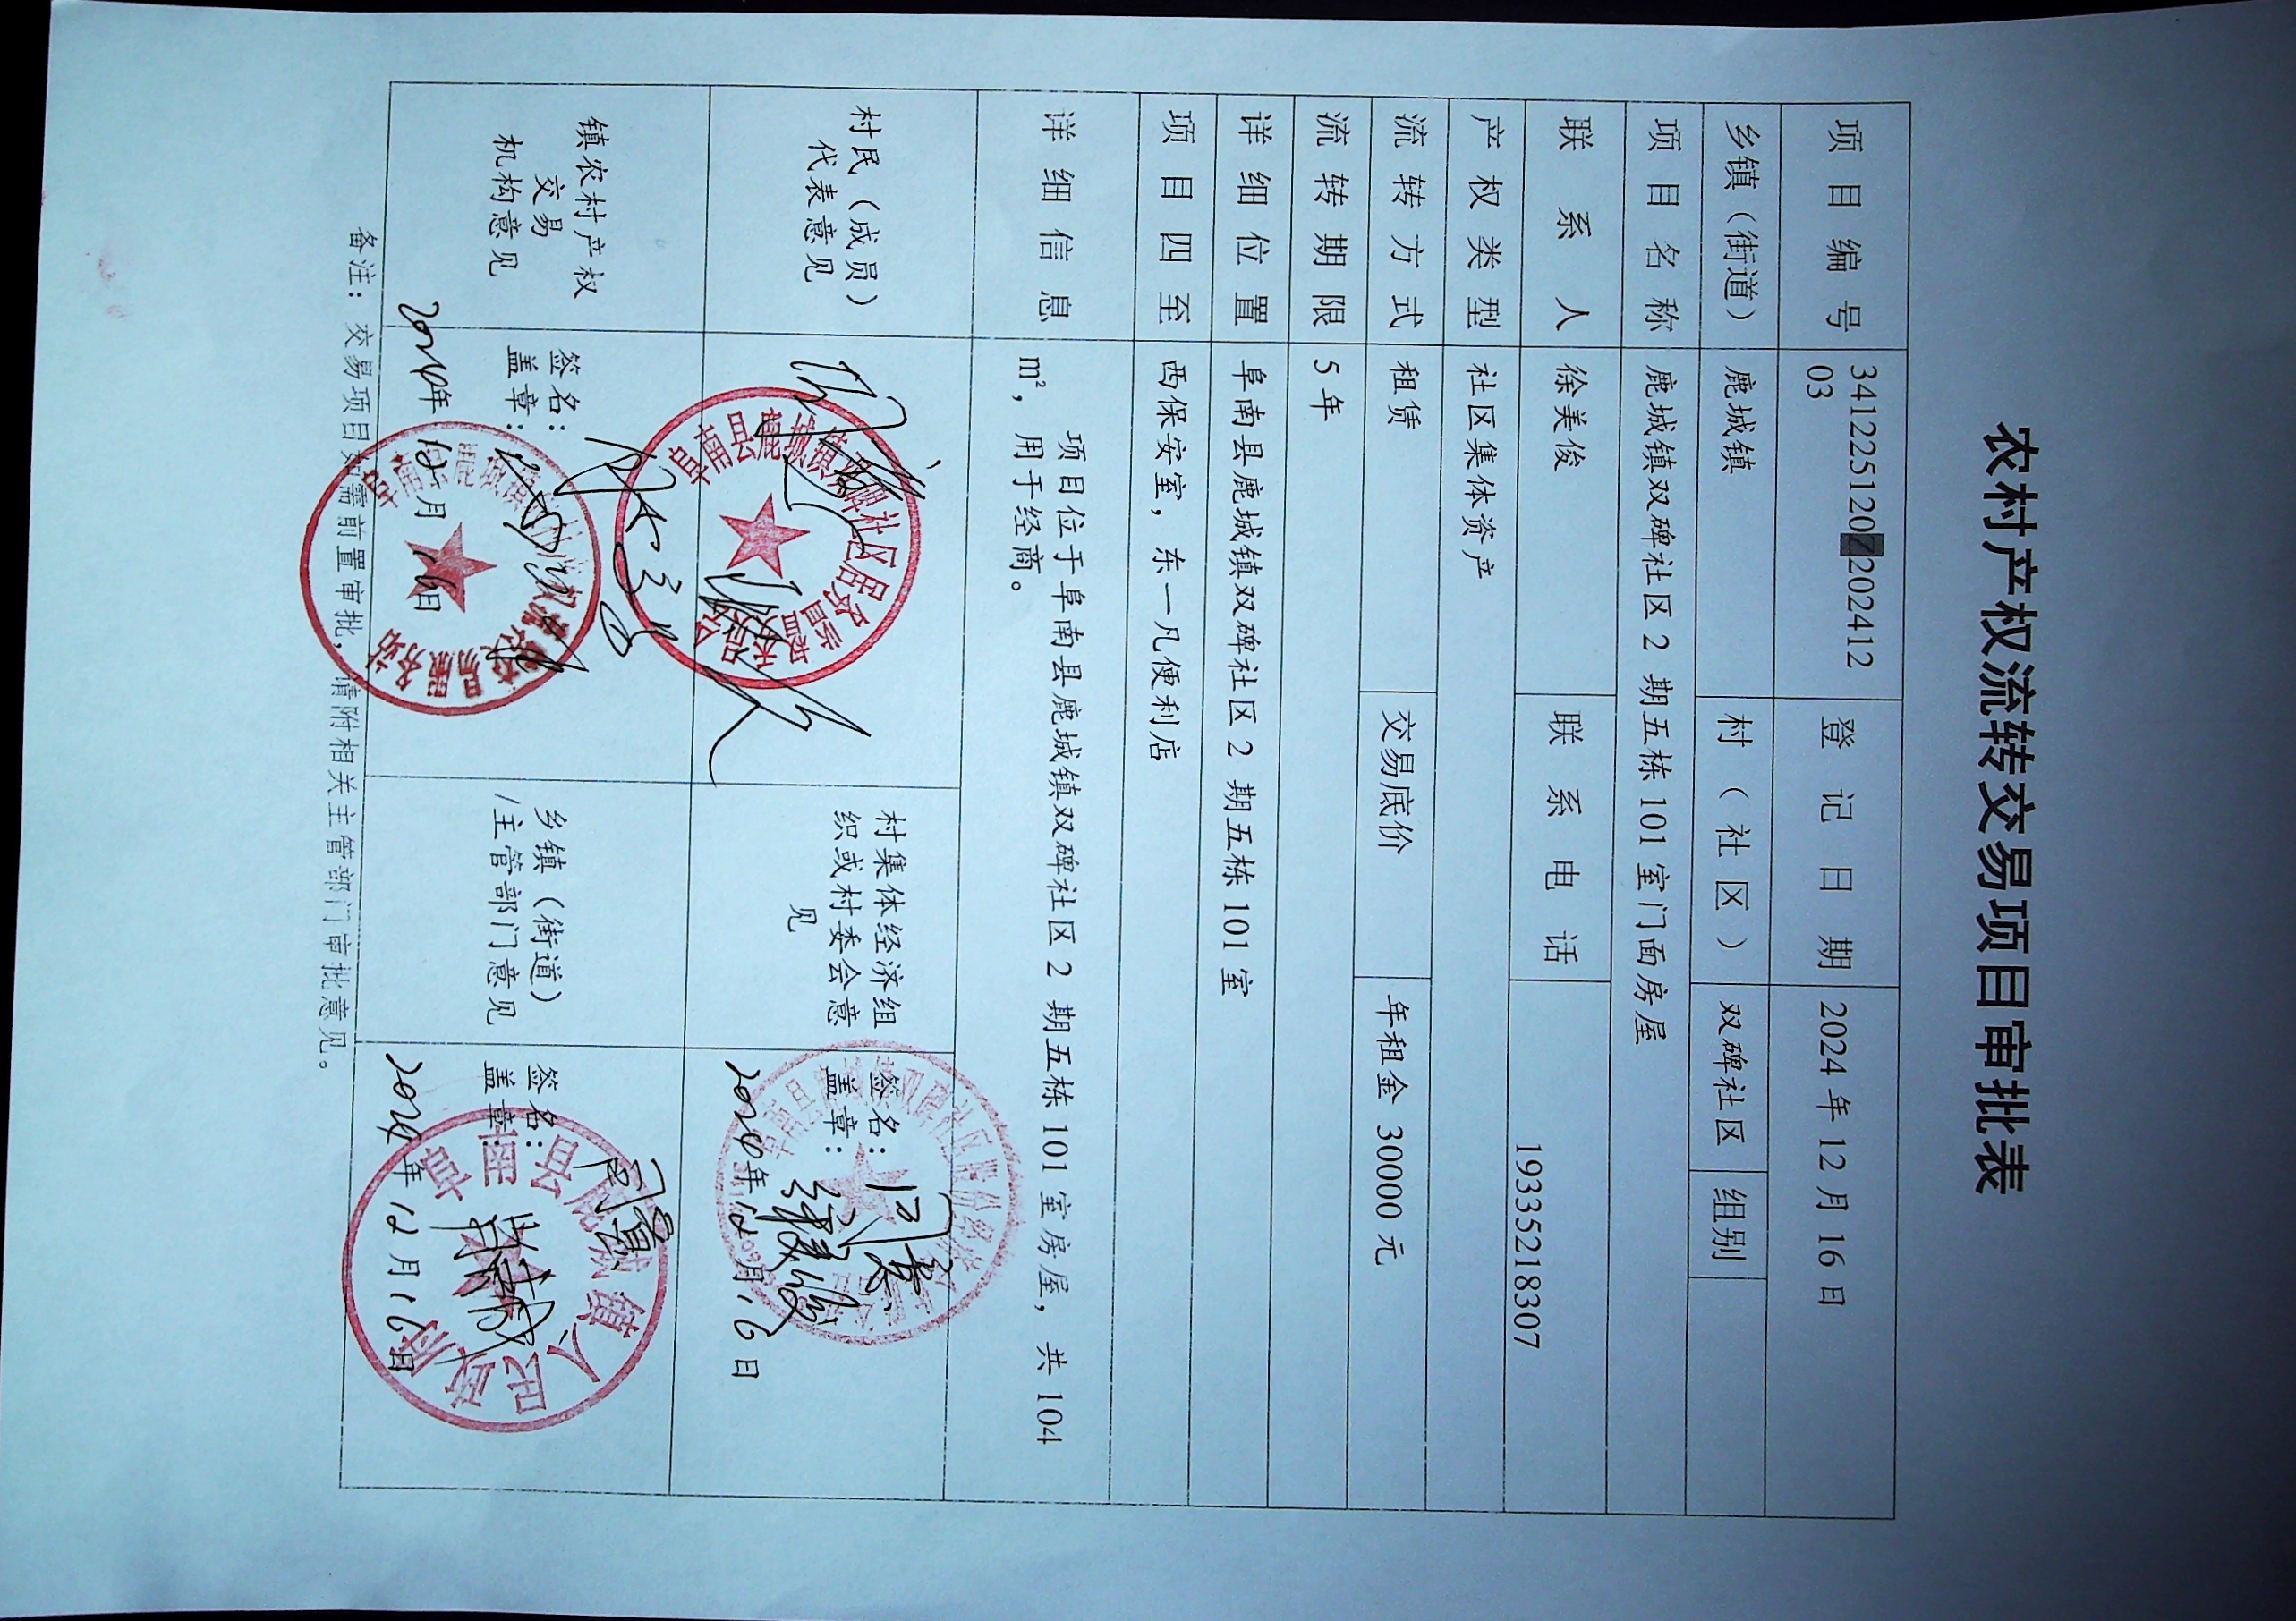 农村产权流转交易项目审批表
项目编号 34122512022024­12 登记日期 2024年12月16日
03
乡镇（街道） 鹿城镇 村（社区） 双碑社区 组别
项目名称 鹿城镇双碑社区2期五栋101室门面房屋
联系人 徐美俊 联系电话 19335218307
产权类型 社区集体资产
流转方式 租赁 交易底价 年租金30000元
流转期限 5年
详细位置 阜南县鹿城镇双碑社区2期五栋101室
项目四至 西保安室，东一凡便利店
详细信息 项目位于阜南县鹿城镇双碑社区2期五栋101室房屋，共104
m²，用于经商。
村民（成员）
代表意见
村集体经济组
织或村委会意
见
签名：
盖章：
2024年12月16日
镇农村产权
交易
机构意见
签名：
盖章：
2024年12月16日
乡镇（街道）
/主管部门意见
签名：
盖章：
阜南县鹿城镇人民政府
2024年12月16日
备注：交易项目如需前置审批，请附相关主管部门审批意见。